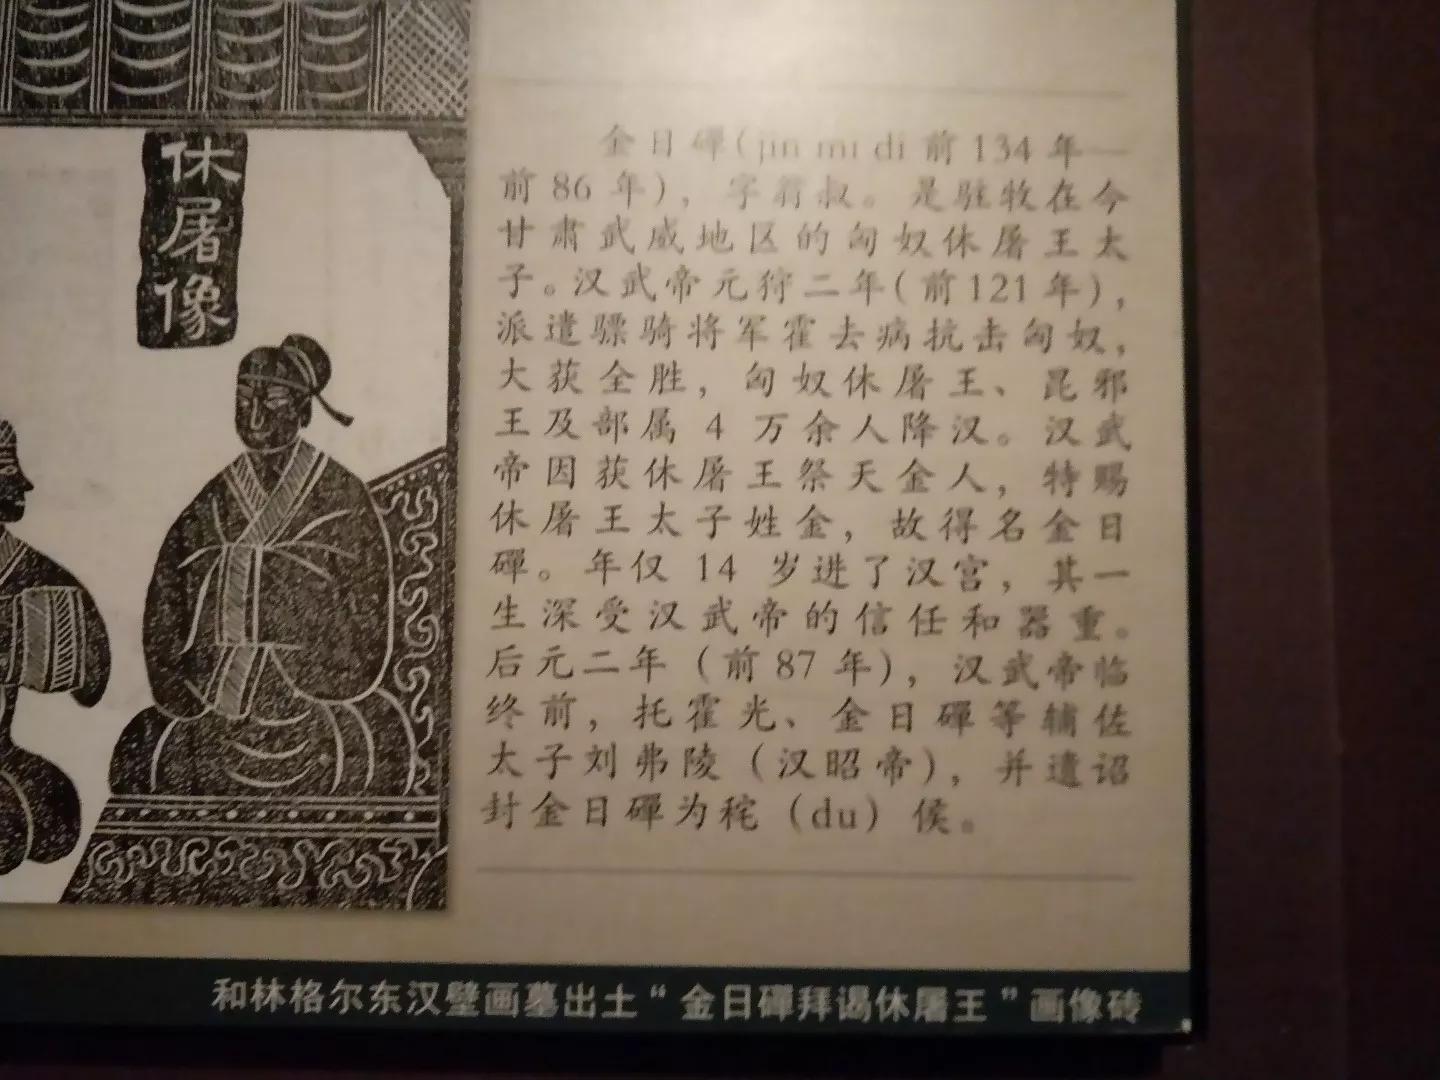 休屠像
金日磾(jin mi di 前134年—
前86年)，字翁叔。是驻牧在今
甘肃武威地区的匈奴休屠王太
子。汉武帝元狩二年(前121年)，
派遣骠骑将军霍去病抗击匈奴，
大获全胜，匈奴休屠王、昆邪
王及部属4万余人降汉。汉武
帝因获休屠王祭天金人，特赐
休屠王太子姓金，故得名金日
磾。年仅14岁进了汉宫，其一
生深受汉武帝的信任和器重。
后元二年（前87年)，汉武帝临
终前，托霍光、金日磾等辅佐
太子刘弗陵（汉昭帝)，并遗诏
封金日磾为秺（du）侯。
和林格尔东汉壁画墓出土“金日磾拜谒休屠王”画像砖